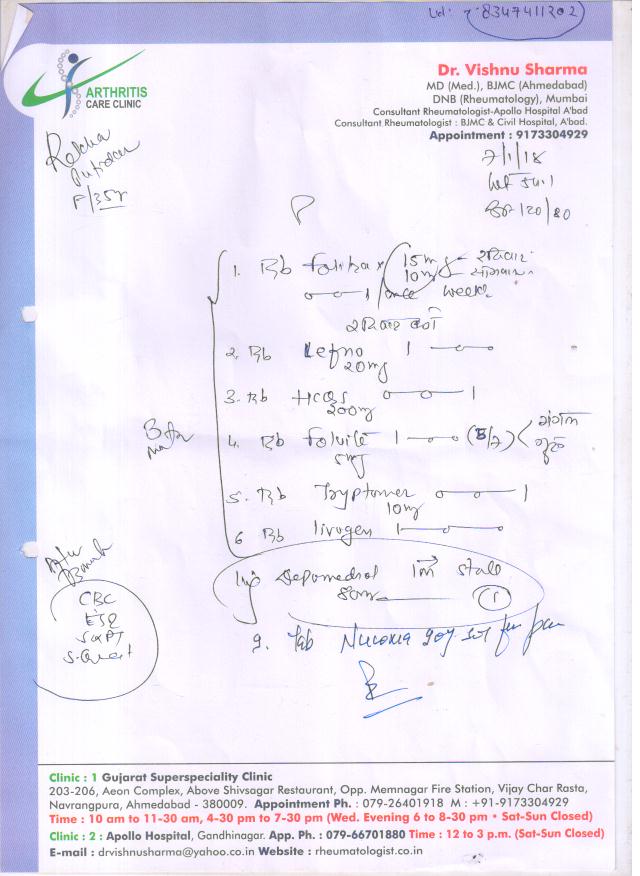 8347411202
ARTHRITIS
CARE CLINIC
Dr. Vishnu Sharma
MD (Med.), BJMC (Ahmedabad)
DNB (Rheumatology), Mumbai
Consultant Rheumatologist-Apollo Hospital A'bad
Consultant Rheumatologist : BJMC & Civil Hospital, A'bad.
Appointment : 9173304929
7/1/18
Rekha
F/35y
BP 120/80
1. 15mg
10mg
0—0—1 once week
2. Lefno 1—0—0
20mg
3. HCQS 0—0—1
200mg
4. Folvite 1—0—0 (5/7)
5mg
5. Tryptomer 0—0—1
10mg
6 livogen 1—0—0
Inj Depomedrol 1m stat
80mg (1)
CBC
ESR
SGPT
S.Creat
9. Tab
Clinic : 1 Gujarat Superspeciality Clinic
203-206, Aeon Complex, Above Shivsagar Restaurant, Opp. Memnagar Fire Station, Vijay Char Rasta,
Navrangpura, Ahmedabad - 380009. Appointment Ph. : 079-26401918 M : +91-9173304929
Time : 10 am to 11-30 am, 4-30 pm to 7-30 pm (Wed. Evening 6 to 8-30 pm • Sat-Sun Closed)
Clinic : 2 : Apollo Hospital, Gandhinagar. App. Ph. : 079-66701880 Time : 12 to 3 p.m. (Sat-Sun Closed)
E-mail : drvishnusharma@yahoo.co.in Website : rheumatologist.co.in